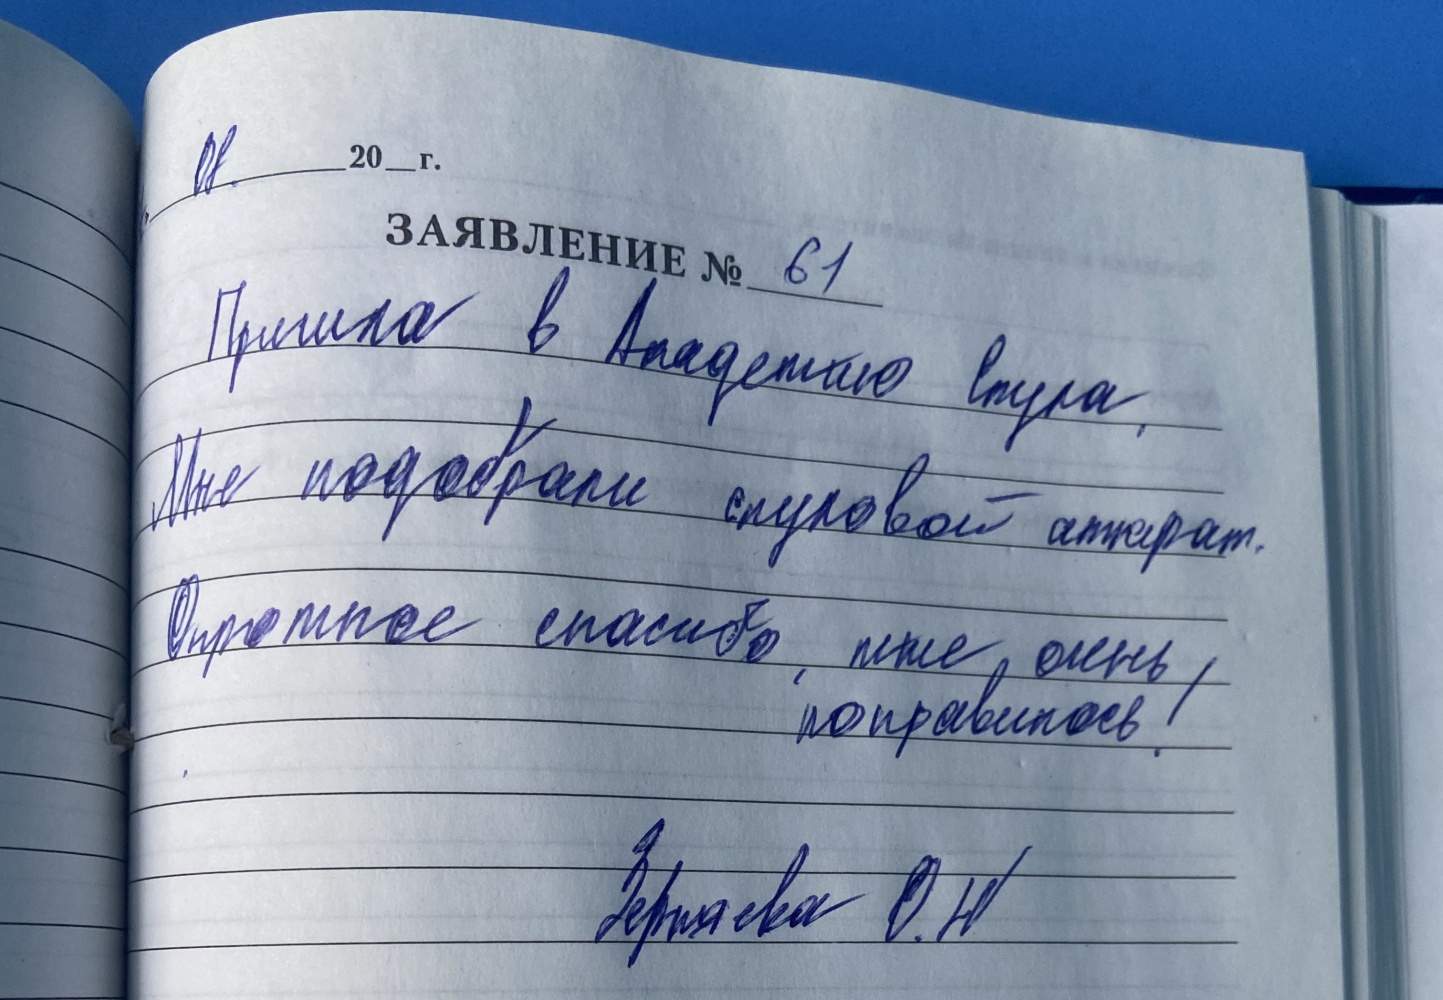 08. 20__г.
ЗАЯВЛЕНИЕ № 61
Пришла в Академию Слуха,
Мне подобрали слуховой аппарат.
Огромное спасибо, мне очень
понравилось!
О.Н